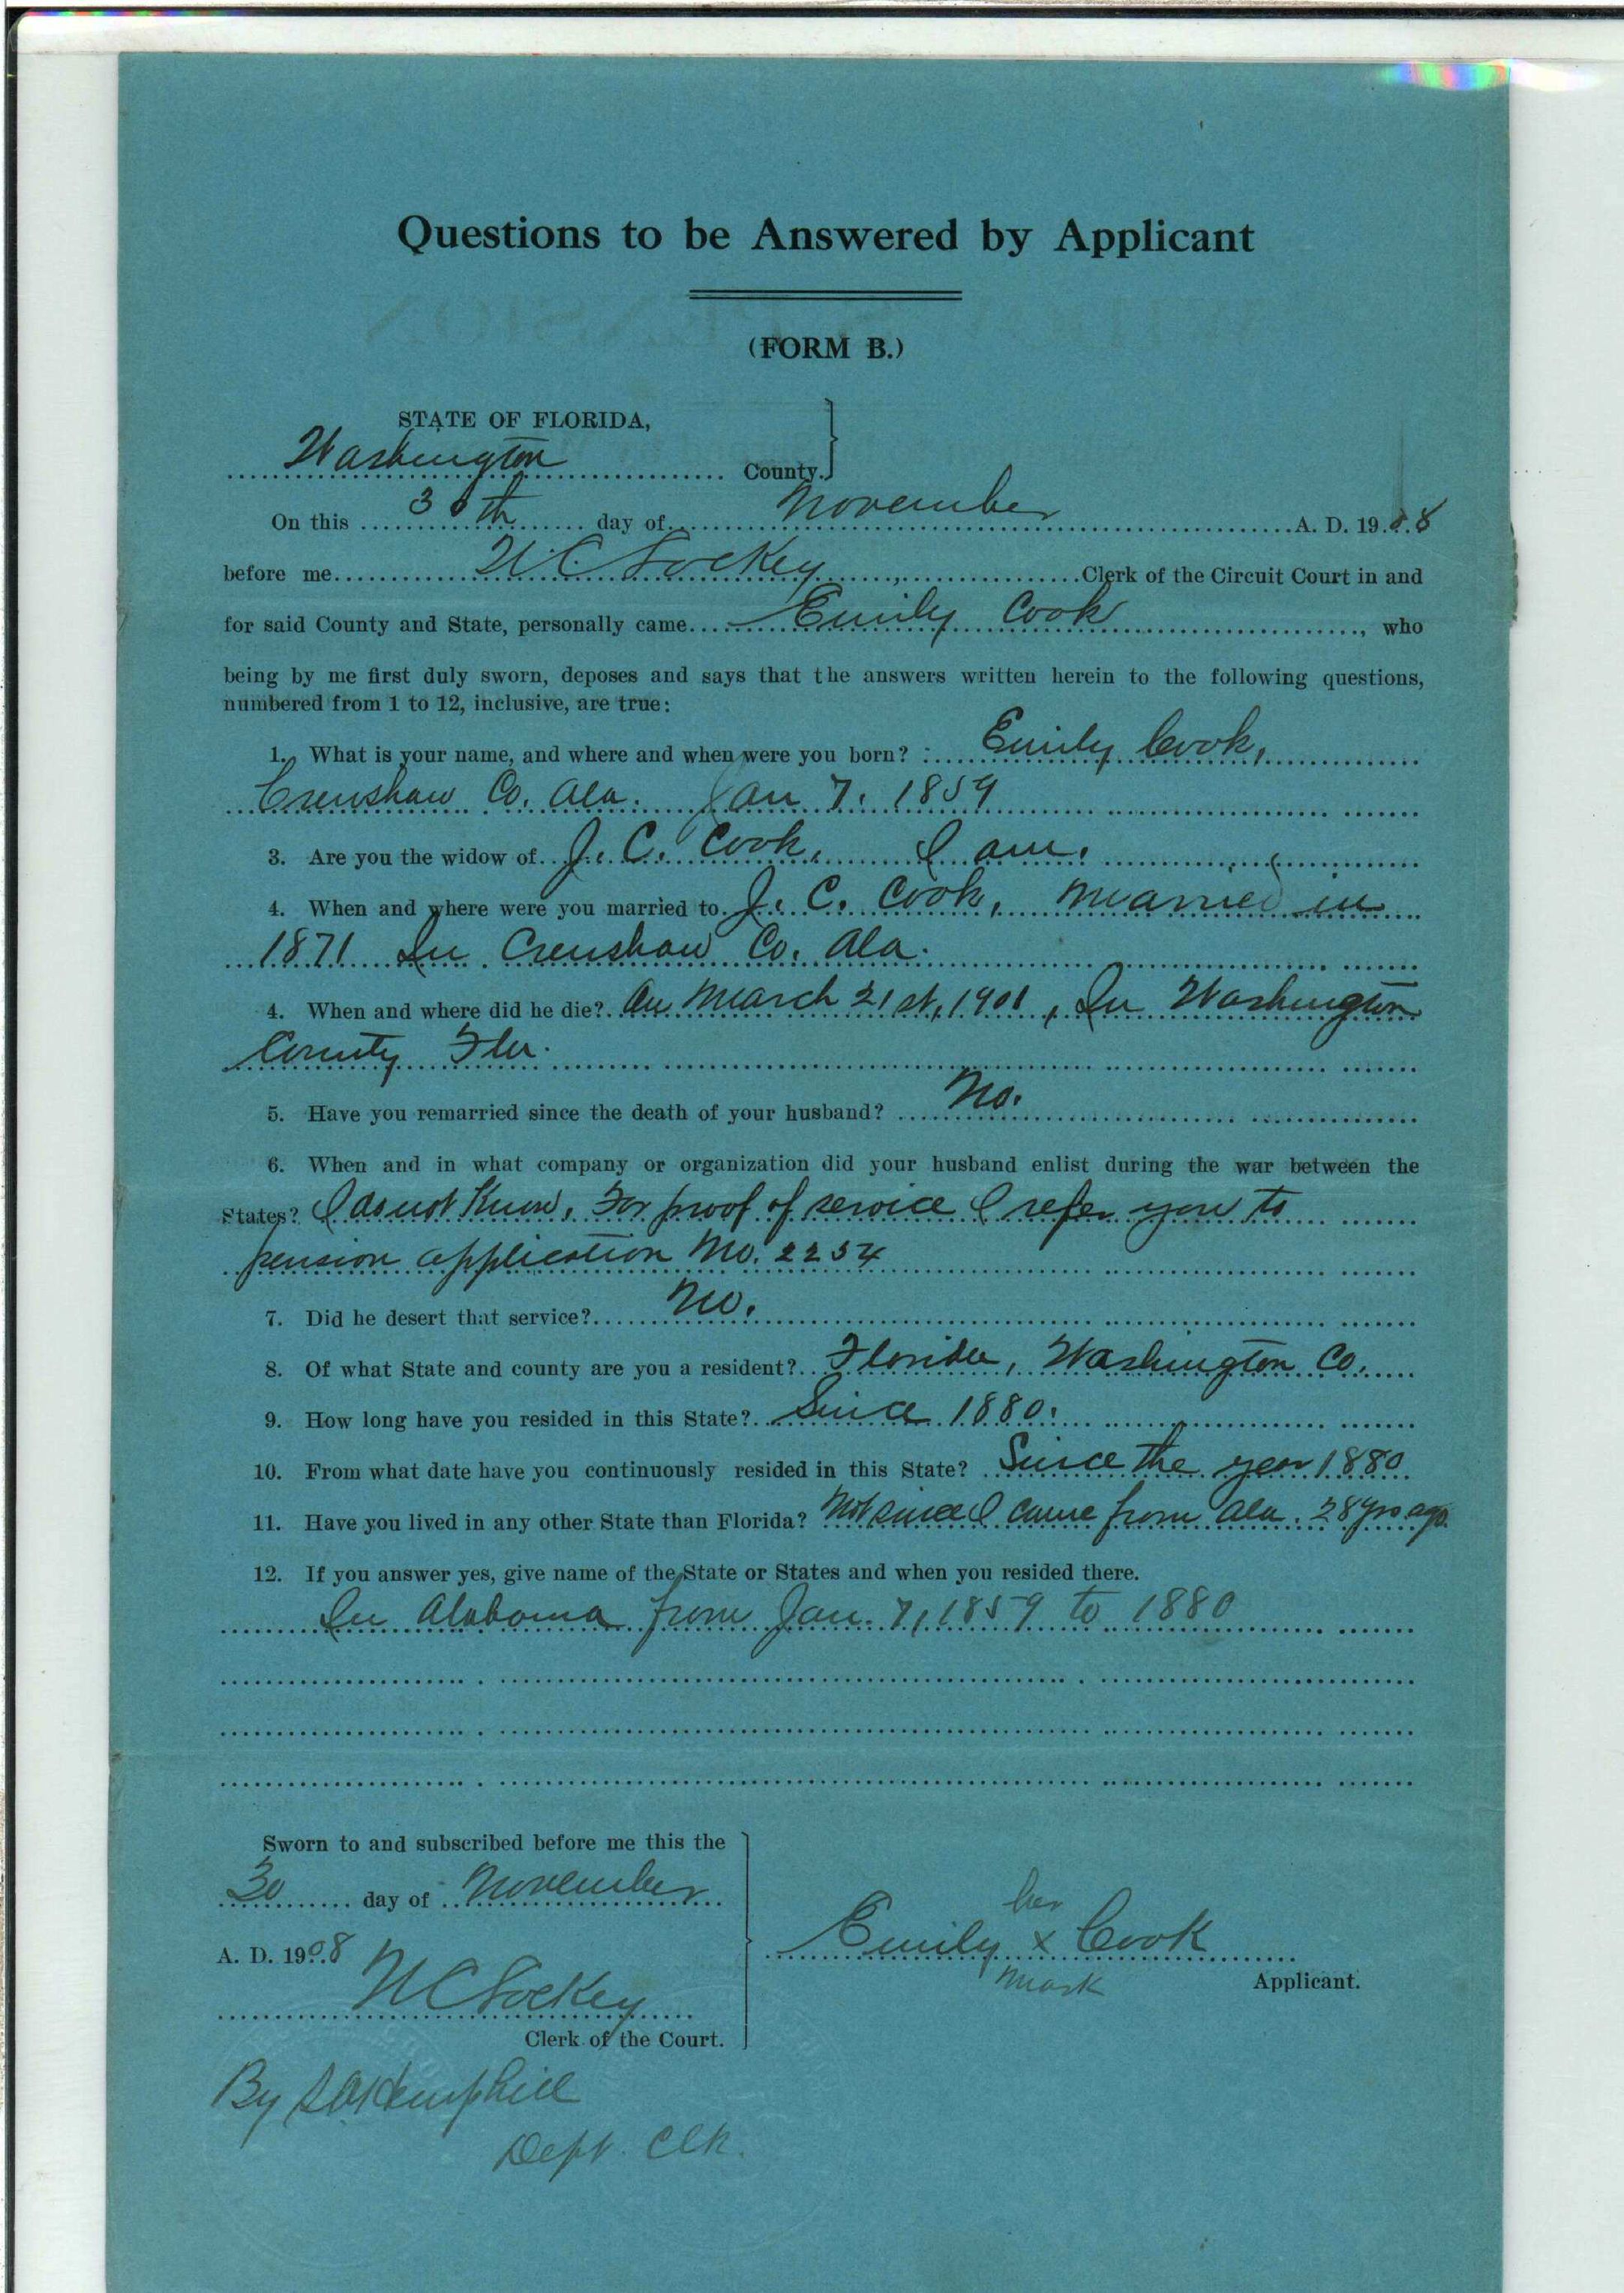 Questions to be Answered by Applicant
(FORM B.)
STATE OF FLORIDA,
Washington County.
On this 30th day of November A. D. 1908
before me W. C. Lockey, Clerk of the Circuit Court in and
for said County and State, personally came Emily Cook, who
being by me first duly sworn, deposes and says that the answers written herein to the following questions,
numbered from 1 to 12, inclusive, are true:
1. What is your name, and where and when were you born? Emily Cook,
Crenshaw Co. Ala. Jan 7. 1859
3. Are you the widow of J. C. Cook, I am.
4. When and where were you married to J. C. Cook, Married in
1871 In Crenshaw Co. Ala.
4. When and where did he die? On March 21st, 1901, In Washington
County Fla.
5. Have you remarried since the death of your husband? No.
6. When and in what company or organization did your husband enlist during the war between the
States? I do not Know, For proof of service I refer you to
pension application No. 2254
7. Did he desert that service? No.
8. Of what State and county are you a resident? Florida, Washington Co.
9. How long have you resided in this State? Since 1880.
10. From what date have you continuously resided in this State? Since the year 1880
11. Have you lived in any other State than Florida? Not since I came from Ala. 28 yrs ago.
12. If you answer yes, give name of the State or States and when you resided there.
In Alabama from Jan. 7, 1859 to 1880
Sworn to and subscribed before me this the
30 day of November
A. D. 1908
W C Lockey
Clerk of the Court.
her
Emily x Cook
mark
Applicant.
By Hemphill
Dept. Clk.